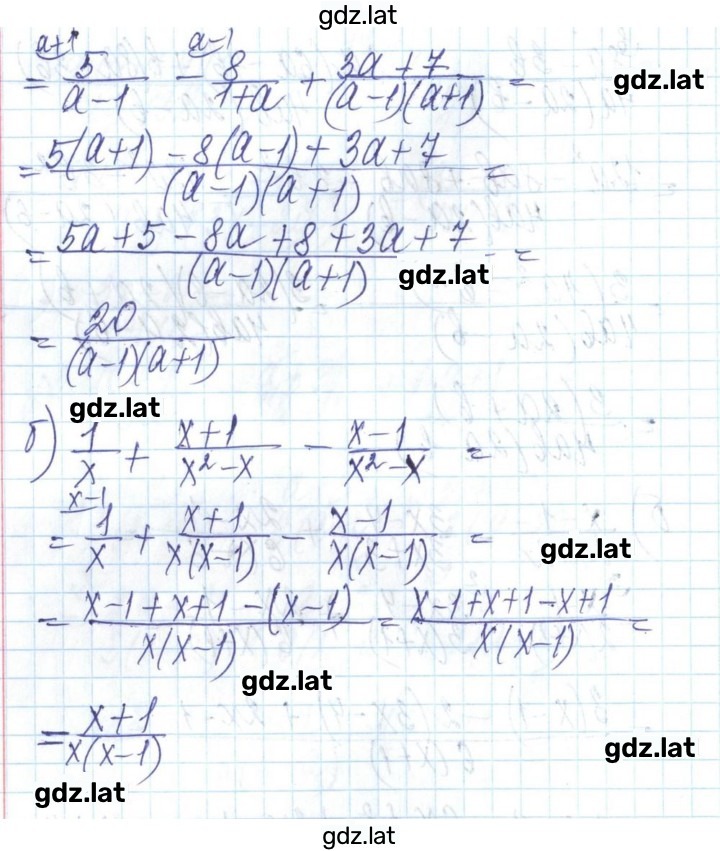 gdz.lat
a+1 a-1
= 5/(a-1) - 8/(1+a) + (3a+7)/((a-1)(a+1)) =
gdz.lat
= (5(a+1) - 8(a-1) + 3a+7)/((a-1)(a+1)) =
= (5a+5-8a+8+3a+7)/((a-1)(a+1)) =
gdz.lat
= 20/((a-1)(a+1))
gdz.lat
б) 1/x + (x+1)/(x²-x) - (x-1)/(x²-x) =
x-1
= 1/x + (x+1)/(x(x-1)) - (x-1)/(x(x-1)) =
gdz.lat
= (x-1+x+1-(x-1))/(x(x-1)) = (x-1+x+1-x+1)/(x(x-1)) =
gdz.lat
= (x+1)/(x(x-1))
gdz.lat
gdz.lat
gdz.lat